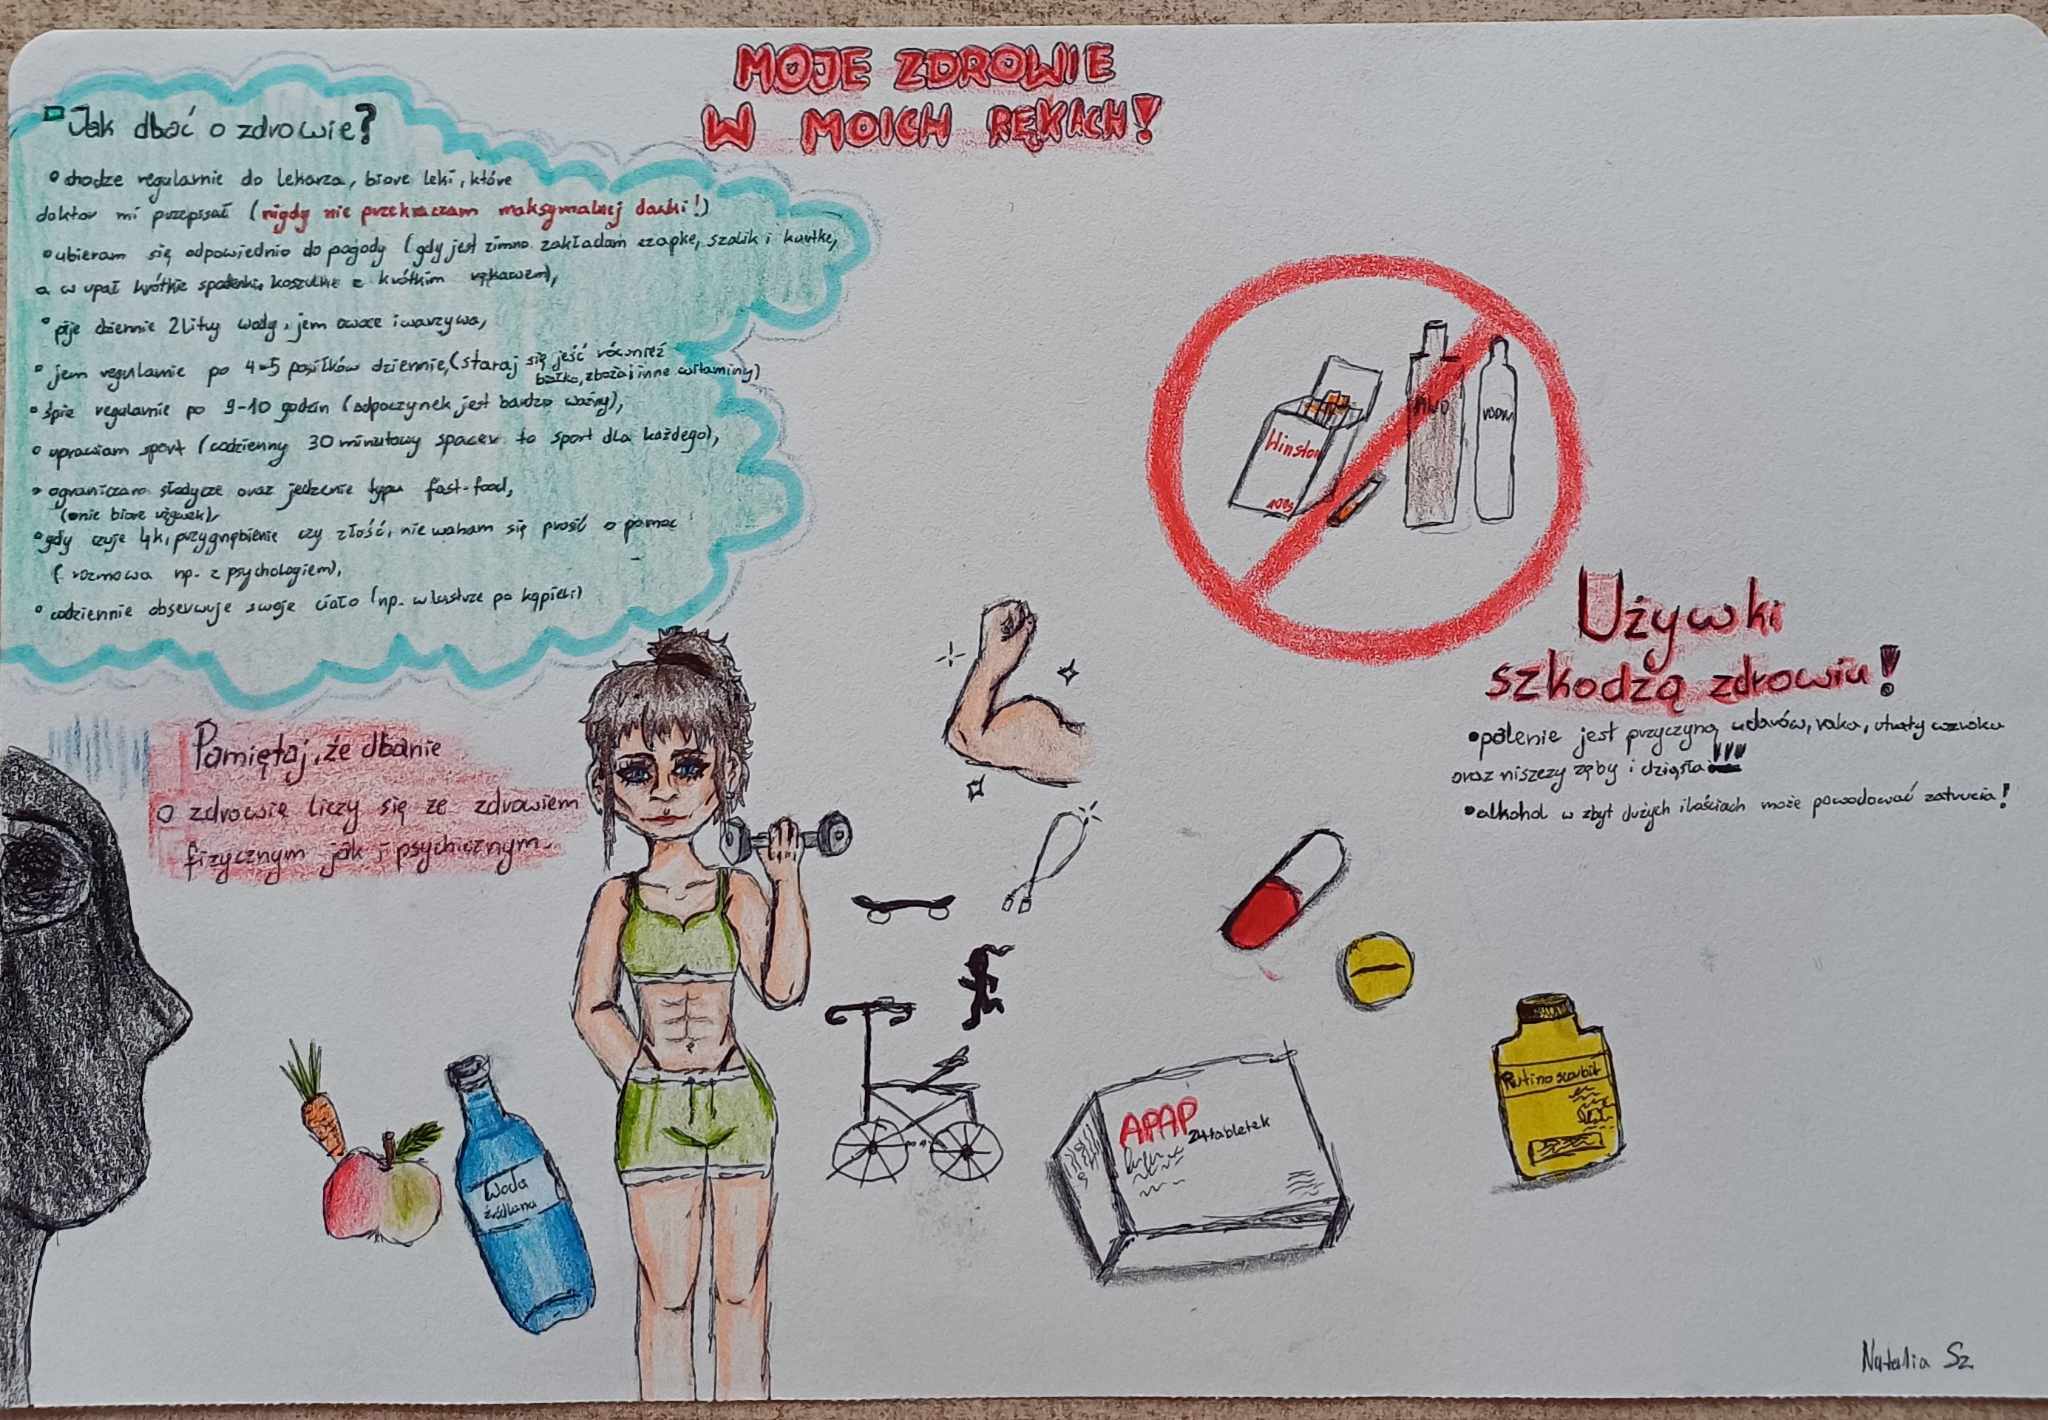 MOJE ZDROWIE
W MOICH RĘKACH!
Jak dbać o zdrowie?
chodze regularnie do lekarza, biore leki, które
doktor mi przepisał (nigdy nie przekraczam maksymalnej dawki!)
ubieram się odpowiednio do pogody (gdy jest zimno zakładam czapke, szalik i kurtke,
a w upał krótkie spodenki, koszulke z krótkim rękawem),
pije dziennie 2 litry wody, jem owoce i warzywa,
jem regularnie po 4-5 posiłków dziennie, (staraj się jeść również
białko, zboża i inne witaminy)
śpie regularnie po 9-10 godzin (odpoczynek jest bardzo ważny),
uprawiam sport (codzienny 30 minutowy spacer to sport dla każdego),
ograniczam słodycze oraz jedzenie typu fast-food,
(nie biore używek),
gdy czuje lęk, przygnębienie czy złość, nie waham się prosić o pomoc
(rozmowa np. z psychologiem),
codziennie obserwuje swoje ciało (np. w lustrze po kąpieli)
Pamiętaj, że dbanie
o zdrowie liczy się ze zdrowiem
fizycznym jak i psychicznym.
Winston
100s
PIWO
VODKA
Używki
szkodzą zdrowiu!
palenie jest przyczyną udarów, raka, utraty wzroku
oraz niszczy zęby i dziąsła!!!
alkohol w zbyt dużych ilościach może powodować zatrucia!
Woda
źródlana
APAP
24 tabletek
Rutinoscorbit
Natalia Sz